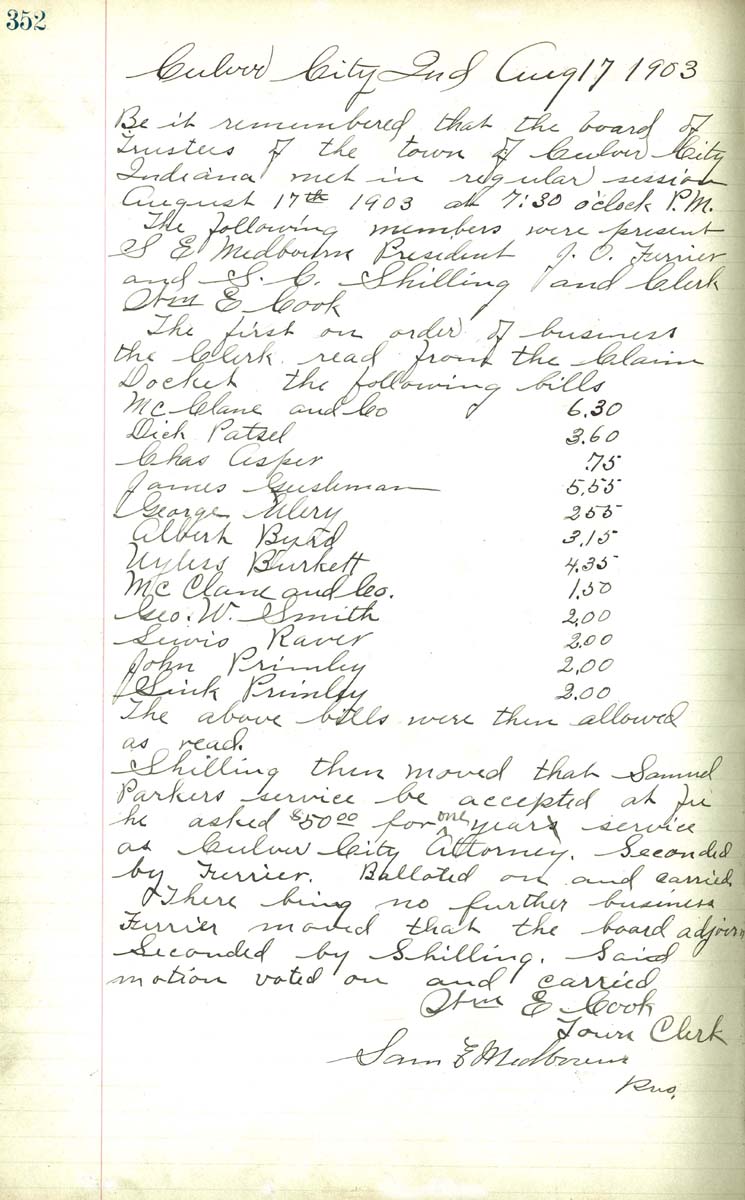 352
Culver City Ind Aug 17 1903
Be it remembered that the board of
Trustees of the town of Culver City
Indiana met in regular session
August 17th 1903 at 7:30 o'clock P.M.
The following members were present
S E Medbourn President J. O. Ferrier
and S. C. Shilling and Clerk
Wm E Cook
The first on order of business
the Clerk read from the Claim
Docket the following bills
Mc Clane and Co 6.30
Dick Patsel 3.60
Chas Asper .75
James 5.55
George 255
Albert Byrd 3.15
Ulyless Burkett 4.35
Mc Clane and Co. 1.50
Geo. W. Smith 2.00
Lewis Raver 2.00
John Primley 2.00
Sink Primley 2.00
The above bills were then allowed
as read.
Shilling then moved that Samuel
Parkers service be accepted at
he asked $50.00 for one year service
as Culver City Attorney. Seconded
by Ferrier. Balloted on and carried
There being no further business
Ferrier moved that the board adjourn
Seconded by Shilling. Said
motion voted on and carried
Wm E Cook
Town Clerk
Sam E Medbourn
Pres.